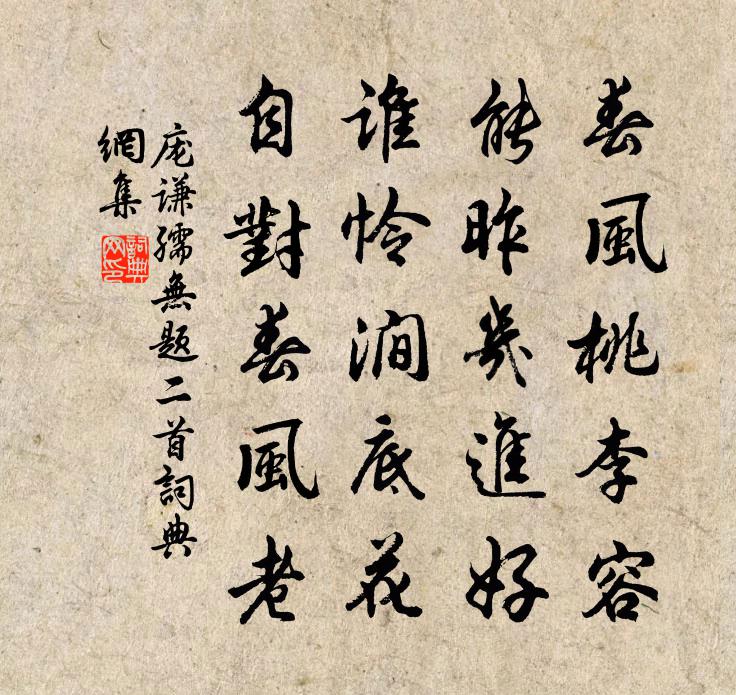 春風桃李容
能昨幾進好
誰怜澗底花
自對春風老
庞謙孺無題二首詞典
網集
詞典
网印